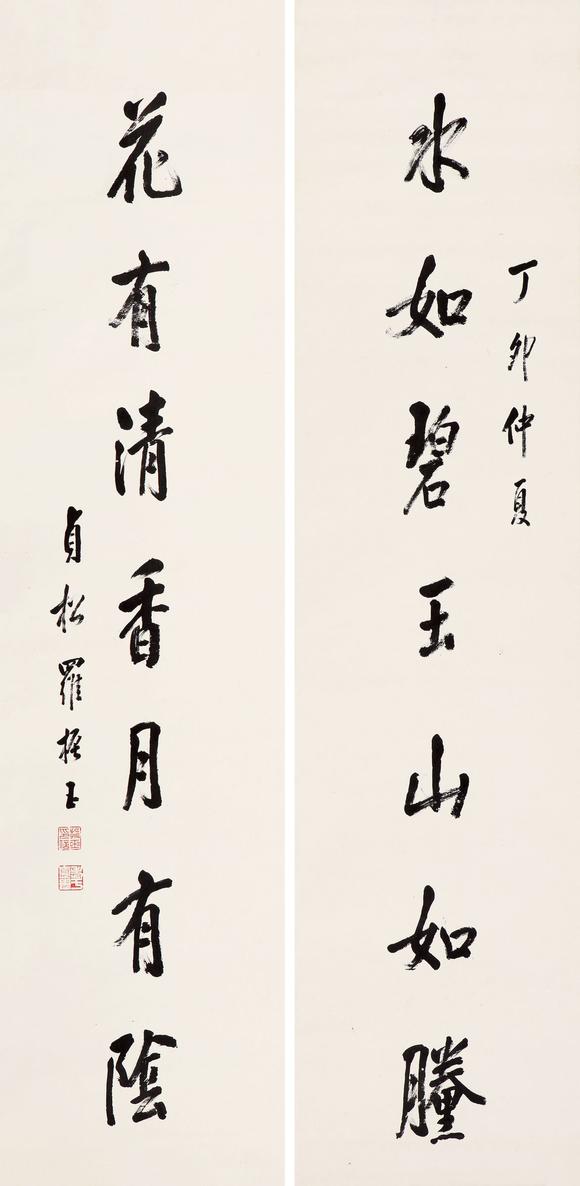 丁卯仲夏
水如碧玉山如黱
花有清香月有陰
貞松羅振玉